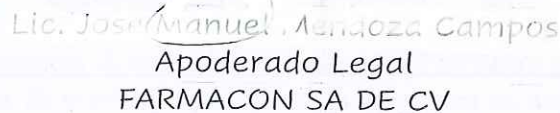 Lic. José Manuel Mendoza Campos
Apoderado Legal
FARMACON SA DE CV